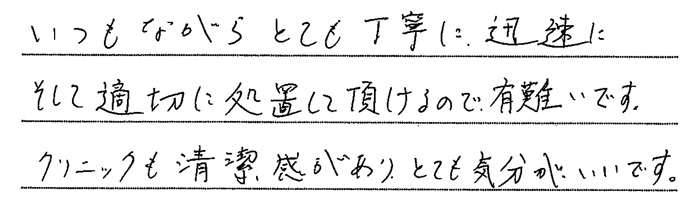 いつもながらとても丁寧に、迅速に
そして適切に処置して頂けるので、有難いです。
クリニックも清潔感があり、とても気分がいいです。